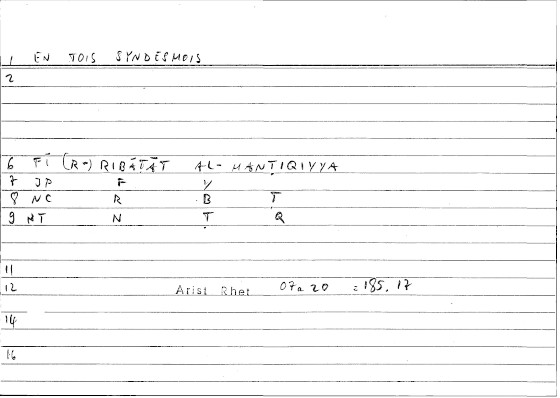 1 EN TOIS SYNDESMOIS
2
6 FĪ (R-) RIBĀṬĀT AL-MANṬIQIYYA
7 JP F Y
8 NC R B Ṭ
9 NT N Ṭ Q
11
12 Arist Rhet 07a 20 = 185, 17
14
16